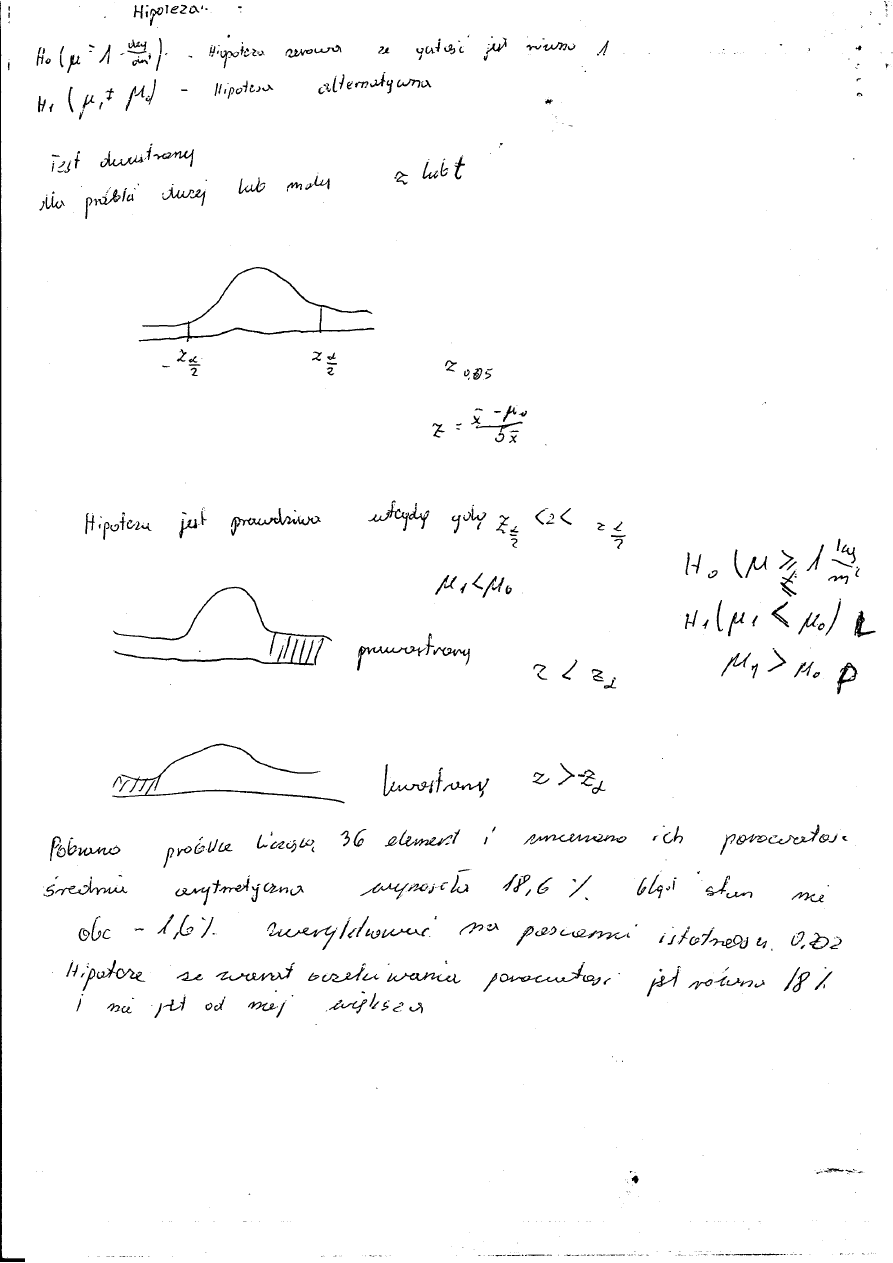 Hipoteza
H₀ (μ = 1 ) - Hipoteza zerowa że gęstość jest równa 1
H₁ (μ₁ ≠ μ₀) - Hipoteza alternatywna
Test dwustrony
dla próbki dużej lub małej z lub t
- z α/2 z α/2
z 0,05
z = x̄ - μ₀ / Sx̄
Hipoteza jest prawdziwa wtedy gdy z α/2 < z < z α/2
H₀ (μ ≥ 1 kg/m³
μ₁ < μ₀
H₁ (μ₁ < μ₀) L
prawostrony z < zα
μ₁ > μ₀ P
lewostrony z > -zα
Pobrano próbkę liczącą 36 element i zmierzono ich porowatość
średnia arytmetyczna wynosiła 18,6 % błąd stan
obc - 1,6 % zweryfikować na poziomie istotności
Hipoteze że oczekiwania porowatosi jest równa 18 %
i nie jest od niej większa